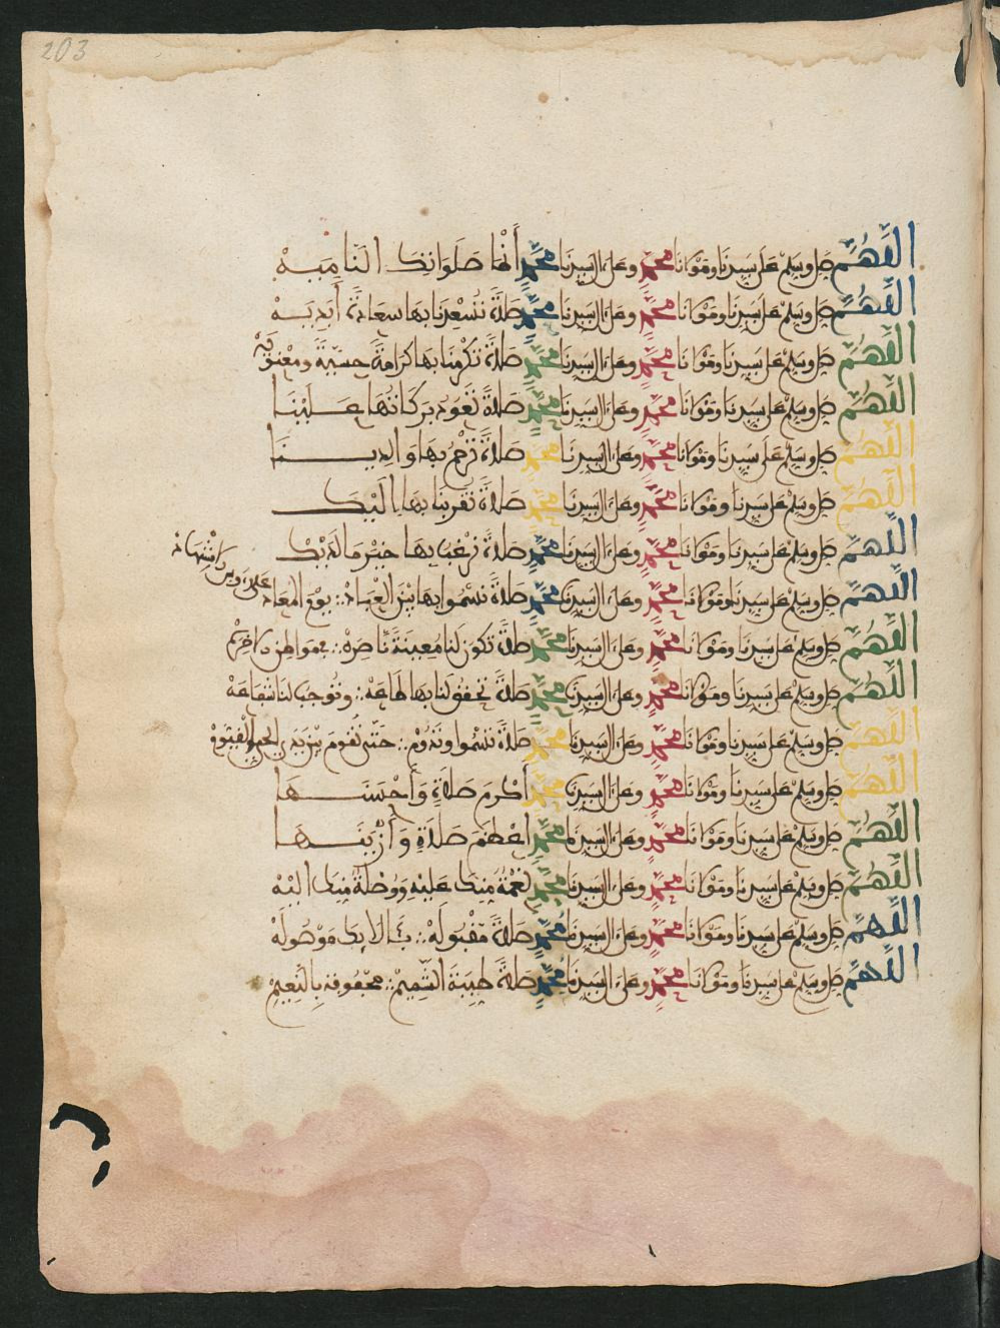 203
اللهم صل وسلم على سيدنا ومولانا محمد وعلى آل سيدنا محمد أنما صلواتك النامية
اللهم صل وسلم على سيدنا ومولانا محمد وعلى آل سيدنا محمد صلاة تسعدنا بها سعادة أبدية
اللهم صل وسلم على سيدنا ومولانا محمد وعلى آل سيدنا محمد صلاة تكرمنا بها كرامة حسية ومعنوية
اللهم صل وسلم على سيدنا ومولانا محمد وعلى آل سيدنا محمد صلاة تعود بركاتها علينا
اللهم صل وسلم على سيدنا ومولانا محمد وعلى آل سيدنا محمد صلاة ترحم بها والدينا
اللهم صل وسلم على سيدنا ومولانا محمد وعلى آل سيدنا محمد صلاة تقربنا بها إليك
اللهم صل وسلم على سيدنا ومولانا محمد وعلى آل سيدنا محمد صلاة ترغبنا بها خير ما لديك
اللهم صل وسلم على سيدنا ومولانا محمد وعلى آل سيدنا محمد صلاة نسموا بها بين العباد يوم المعاد على رءوس الاشهاد
اللهم صل وسلم على سيدنا ومولانا محمد وعلى آل سيدنا محمد صلاة تكون لنا معينة ناصرة في مواطن الاخرة
اللهم صل وسلم على سيدنا ومولانا محمد وعلى آل سيدنا محمد صلاة تحقق لنا بها طاعة وتوجب لنا شفاعة
اللهم صل وسلم على سيدنا ومولانا محمد وعلى آل سيدنا محمد صلاة تنموا وتدوم حتى نقوم بين يدي الحي القيوم
اللهم صل وسلم على سيدنا ومولانا محمد وعلى آل سيدنا محمد أكرم صلاة وأحسنها
اللهم صل وسلم على سيدنا ومولانا محمد وعلى آل سيدنا محمد أعظم صلاة وأزينها
اللهم صل وسلم على سيدنا ومولانا محمد وعلى آل سيدنا محمد نعمة منك عليه ووصلة منك إليه
اللهم صل وسلم على سيدنا ومولانا محمد وعلى آل سيدنا محمد صلاة مقبولة بآلائك موصولة
اللهم صل وسلم على سيدنا ومولانا محمد وعلى آل سيدنا محمد صلاة طيبة الشميم محفوفة بالنعيم